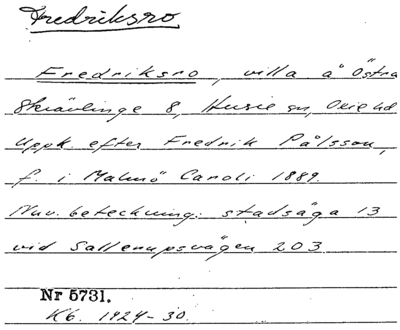 Fredriksro
Fredriksro, villa å Östra
Skrävlinge 8, Husie sn, Oxie hd
Uppk. efter Fredrik Pålsson,
f. i Malmö Caroli 1889.
Nuv. beteckning: stadsäga 13
vid Sallerupsvägen 203.
Nr 5731.
K6. 1924-30.